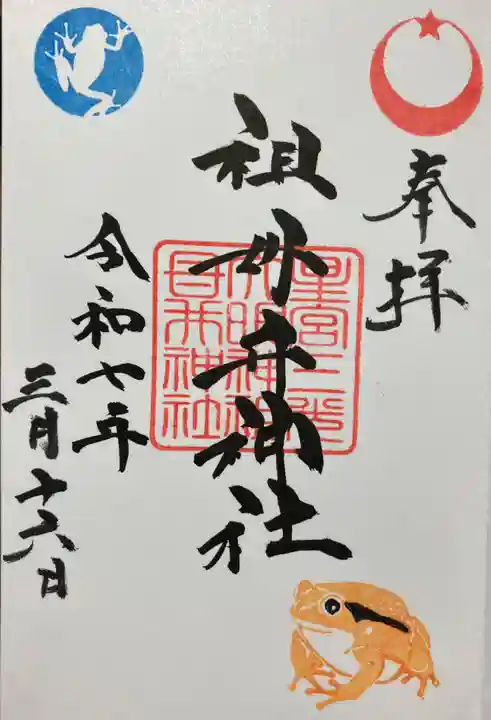 奉拝
祖母井神社
星宮二荒
大明神祖
母井神社
令和七年
三月十六日